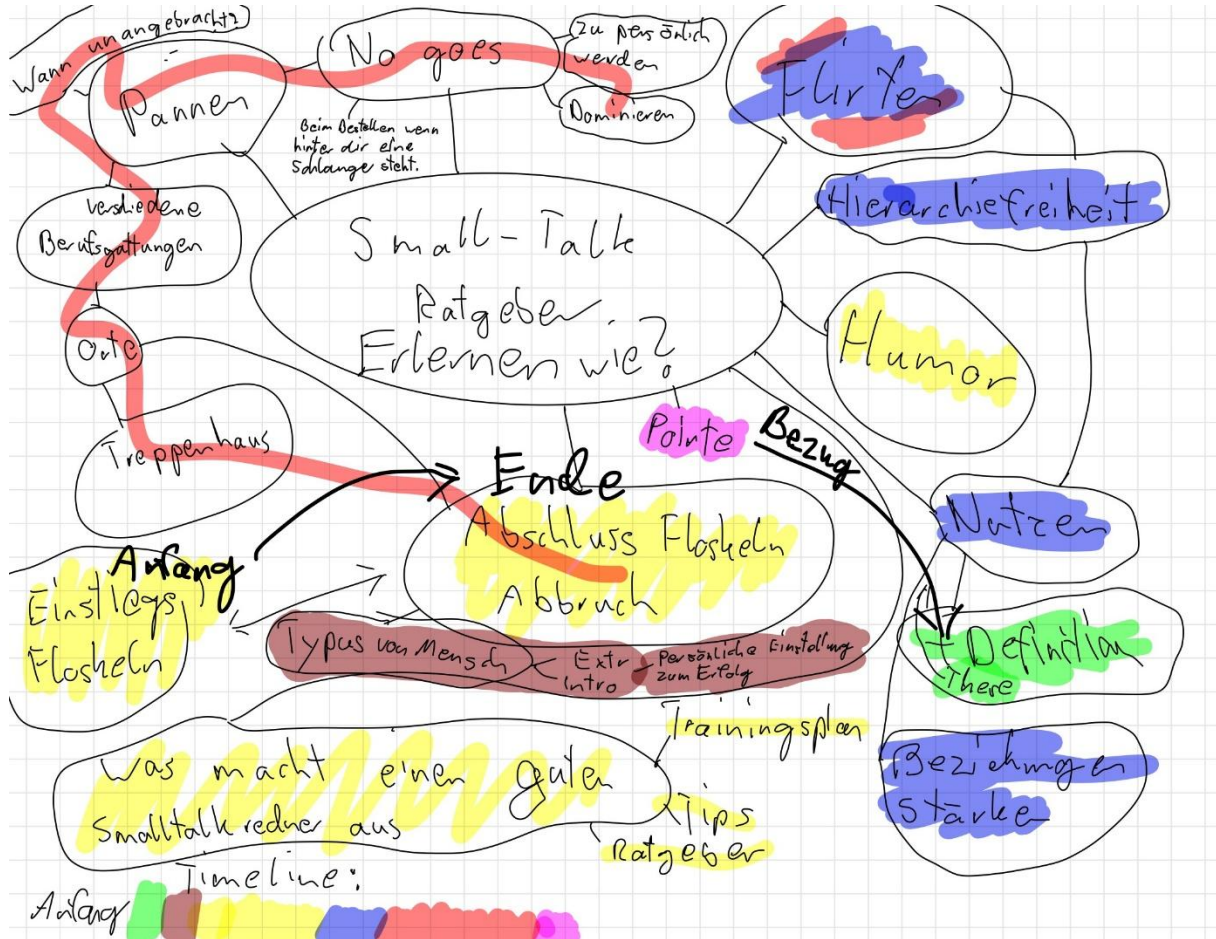 Wann unangebracht?
Pannen
No goes
Zu persönlich
werden
Dominieren
Beim Bestellen wenn
hinter dir eine
Schlange steht.
Flirten
Hierarchiefreiheit
verschiedene
Berufsgattungen
Small-Talk
Ratgeber
Erlernen wie?
Humor
Orte
Treppenhaus
Pointe
Bezug
Ende
Abschluss Floskeln
Abbruch
Nutzen
Anfang
Einstiegs
Floskeln
Typus von Mensch
Extr
Intro
Persönliche Einstellung
zum Erfolg
+ Definition
These
Trainingsplan
Was macht einen guten
Smalltalkredner aus
Tips
Ratgeber
Beziehungen
stärken
Timeline:
Anfang